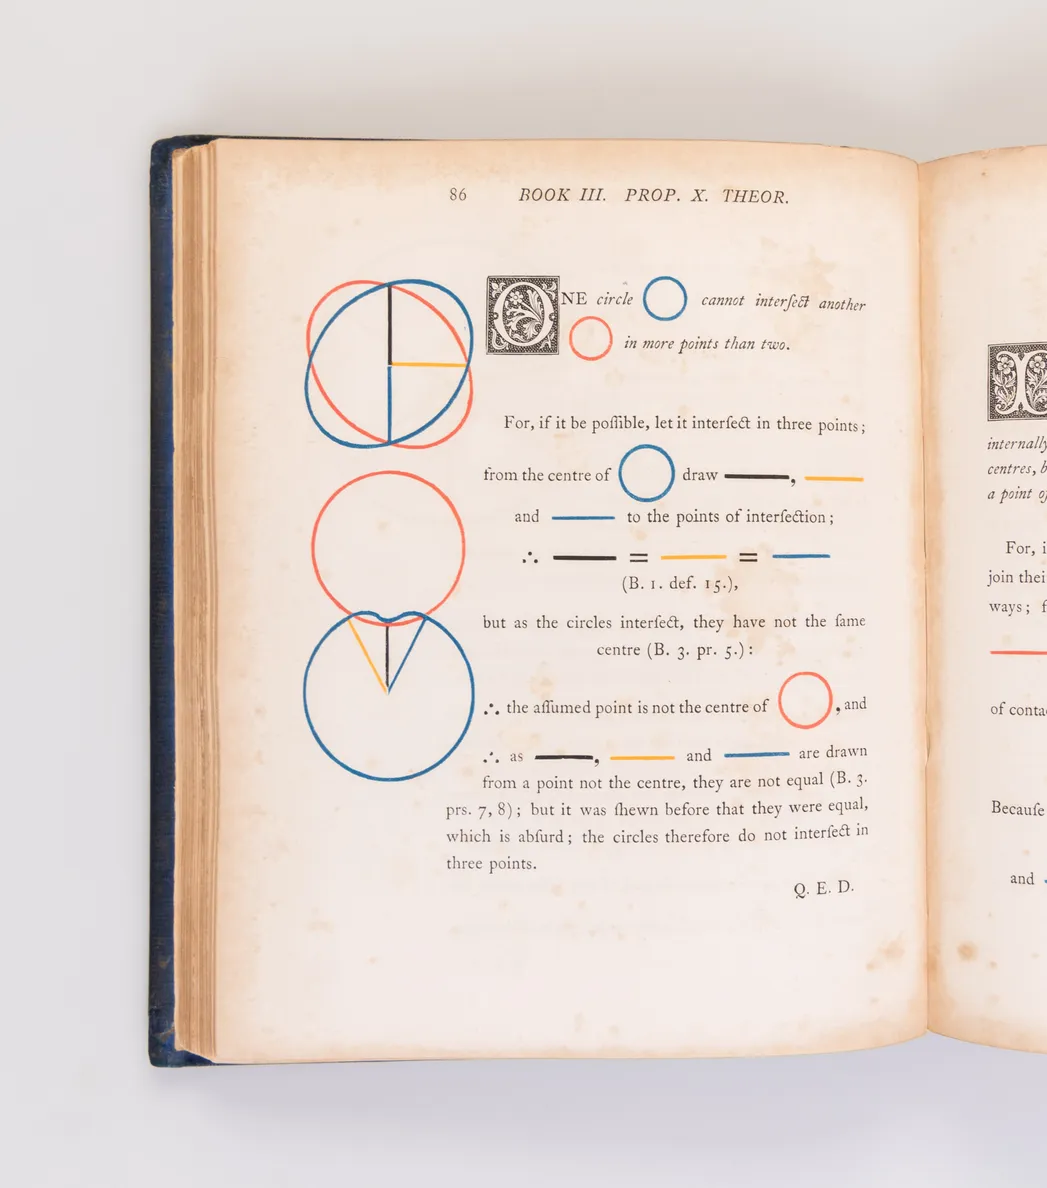 86 BOOK III. PROP. X. THEOR.
ONE circle cannot interſect another
in more points than two.
For, if it be poſſible, let it interſect in three points;
from the centre of draw ,
and to the points of interſection;
∴ = =
(B. 1. def. 15.),
but as the circles interſect, they have not the ſame
centre (B. 3. pr. 5.):
∴ the aſſumed point is not the centre of , and
∴ as , and are drawn
from a point not the centre, they are not equal (B. 3.
prs. 7, 8); but it was ſhewn before that they were equal,
which is abſurd; the circles therefore do not interſect in
three points.
Q. E. D.
internally
centres, b
a point of
For, i
join thei
ways; f
of conta
Becauſe
and